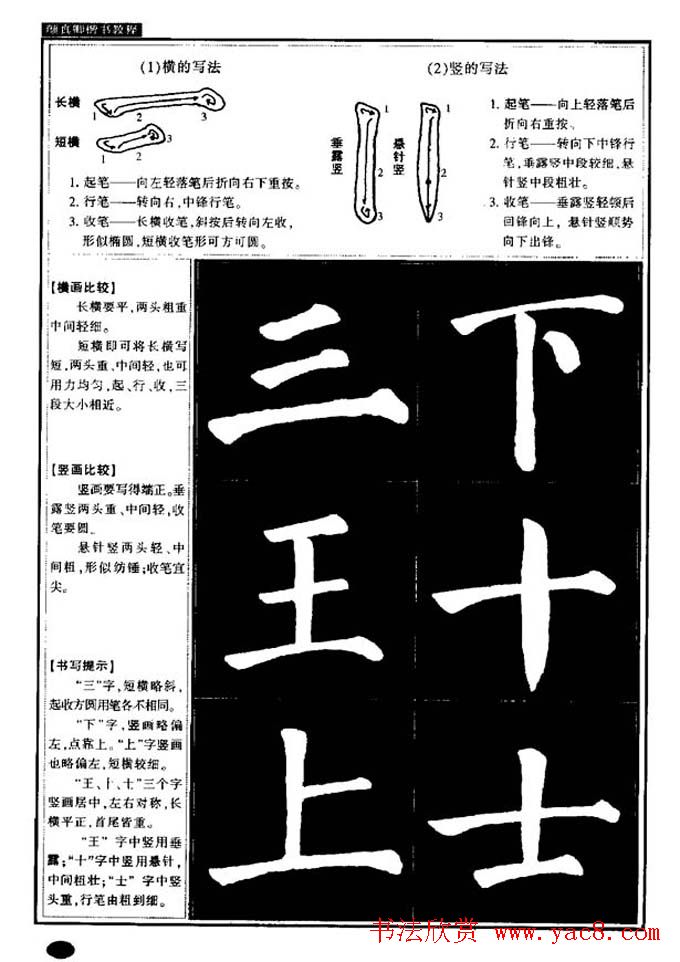 颜真卿楷书教程
(1)横的写法
长横
1 2 3
短横
1 2 3
1. 起笔——向左轻落笔后折向右下重按。
2. 行笔——转向右,中锋行笔。
3. 收笔——长横收笔,斜按后转向左收,
形似椭圆,短横收笔形可方可圆。
(2)竖的写法
垂露竖
1 2 3
悬针竖
1 2 3
1. 起笔——向上轻落笔后
折向右重按。
2. 行笔——转向下中锋行
笔,垂露竖中段较细,悬
针竖中段粗壮。
3. 收笔——垂露竖轻顿后
回锋向上,悬针竖顺势
向下出锋。
【横画比较】
长横要平,两头粗重
中间轻细。
短横即可将长横写
短,两头重、中间轻,也可
用力均匀,起、行、收,三
段大小相近。
【竖画比较】
竖画要写得端正。垂
露竖两头重、中间轻,收
笔要圆。
悬针竖两头轻、中
间粗,形似纺锤;收笔宜
尖。
【书写提示】
“三”字,短横略斜,
起收方圆用笔各不相同。
“下”字,竖画略偏
左,点靠上。“上”字竖画
也略偏左,短横较细。
“王、十、士”三个字
竖画居中,左右对称,长
横平正,首尾皆重。
“王”字中竖用垂
露;“十”字中竖用悬针,
中间粗壮;“士”字中竖
头重,行笔由粗到细。
三 下
王 十
上 士
书法欣赏 www.yac8.com